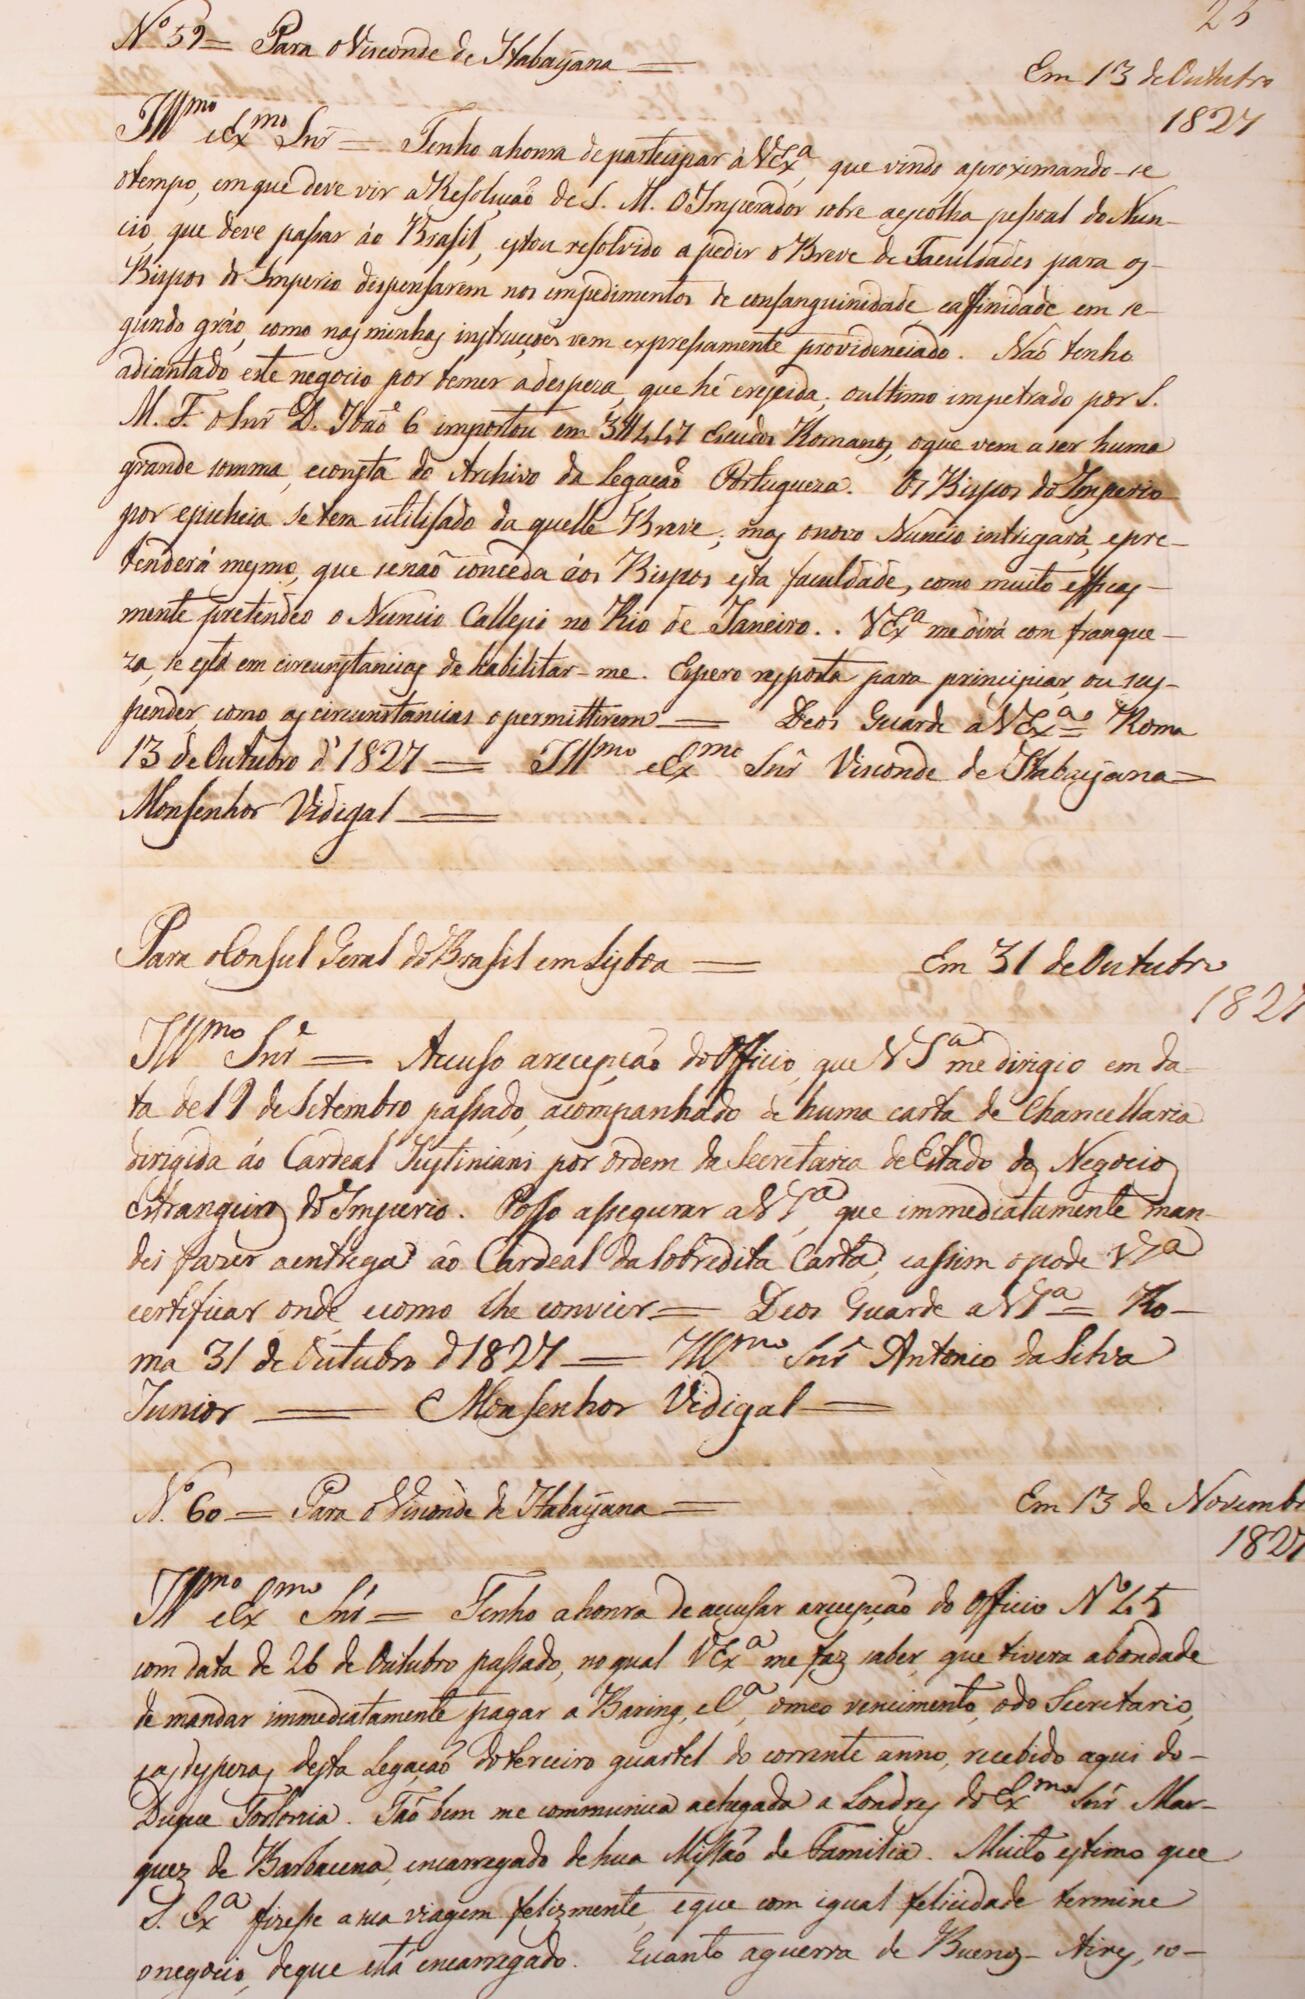 25
Nº 59 = Para o Visconde de Itabayana =
Em 13 de Outubro
1827
Illmo e Exmo Snr = Tenho a honra de participar á V Exa, que vindo aproximando-se
o tempo, em que deve vir a Resolução de S. M. O Imperador sobre a escolha pessoal do Nun-
cio, que deve passar áo Brasil, estou resolvido a pedir o Breve de Faculdades para os
Bispos do Imperio dispensarem nos impedimentos de consanguinidade e affinidade em se-
gundo gráo, como nas minhas instrucções vem expressamente providenciado. Não tenho
adiantado este negocio por temer a despeza, que hé crescida; o ultimo impetrado por S.
M. F. o Snr D. João 6 importou em 3447 Escudos Romanos, o que vem a ser huma
grande somma, e consta do Archivo da Legação Portugueza. Os Bispos do Imperio
por epicheia se tem utilisado da quelle Breve; mas o novo Nuncio intrigará, e pre-
tenderá mesmo, que se não conceda áos Bispos esta faculdade, como muito efficas-
mente pretendeo o Nuncio Callepio no Rio de Janeiro.. V Exa me dirá com franque-
za, se está em circunstancias de habilitar-me. Espero resposta para principiar, ou sus-
pender como as circunstancias o permittirem = Deos Guarde á V Exa = Roma
13 de Outubro d' 1827 = Illmo e Exmo Snr Visconde de Itabayana =
Monsenhor Vidigal =
Para o Consul Geral do Brasil em Lisboa =
Em 31 de Outubro
1827
Illmo Snr = Accuso a recepção do Officio, que V Sa me dirigio em da-
ta de 19 de Setembro passado, acompanhado de huma carta de Chancellaria
dirigida áo Cardeal Justiniani por ordem da Secretaria de Estado dos Negocios
Estrangeiros do Imperio. Posso assegurar a V Sa, que immediatamente man-
dei fazer a entrega áo Cardeal da sobredita Carta, e assim o pode V Sa
certificar onde, e como lhe convier = Deos Guarde a V Sa = Ro-
ma 31 de Outubro d 1827 = Illmo Snr Antonio da Silva
Junior = Monsenhor Vidigal =
Nº 60 = Para o Visconde de Itabayana =
Em 13 de Novembr
1827
Illmo e Exmo Snr = Tenho a honra de accusar a recepção do Officio Nº 45
com data de 26 de Outubro passado, no qual V Exa me faz saber, que tivera a bondade
de mandar immediatamente pagar a Baring, e Ca, o meo vencimento, o do Secretario,
e as despezas desta Legação do terceiro quartel do corrente anno, recebido aqui do
Duque Torlonia. Tão bem me communica a chegada a Londres do Exmo Snr Mar-
quez de Barbacena, encarregado de hua Missão de Familia. Muito estimo que
S. Exa fizesse a sua viagem felizmente, e que com igual felicidade termine
o negocio, de que está encarregado. Quanto a guerra de Buenos-Aires, so-